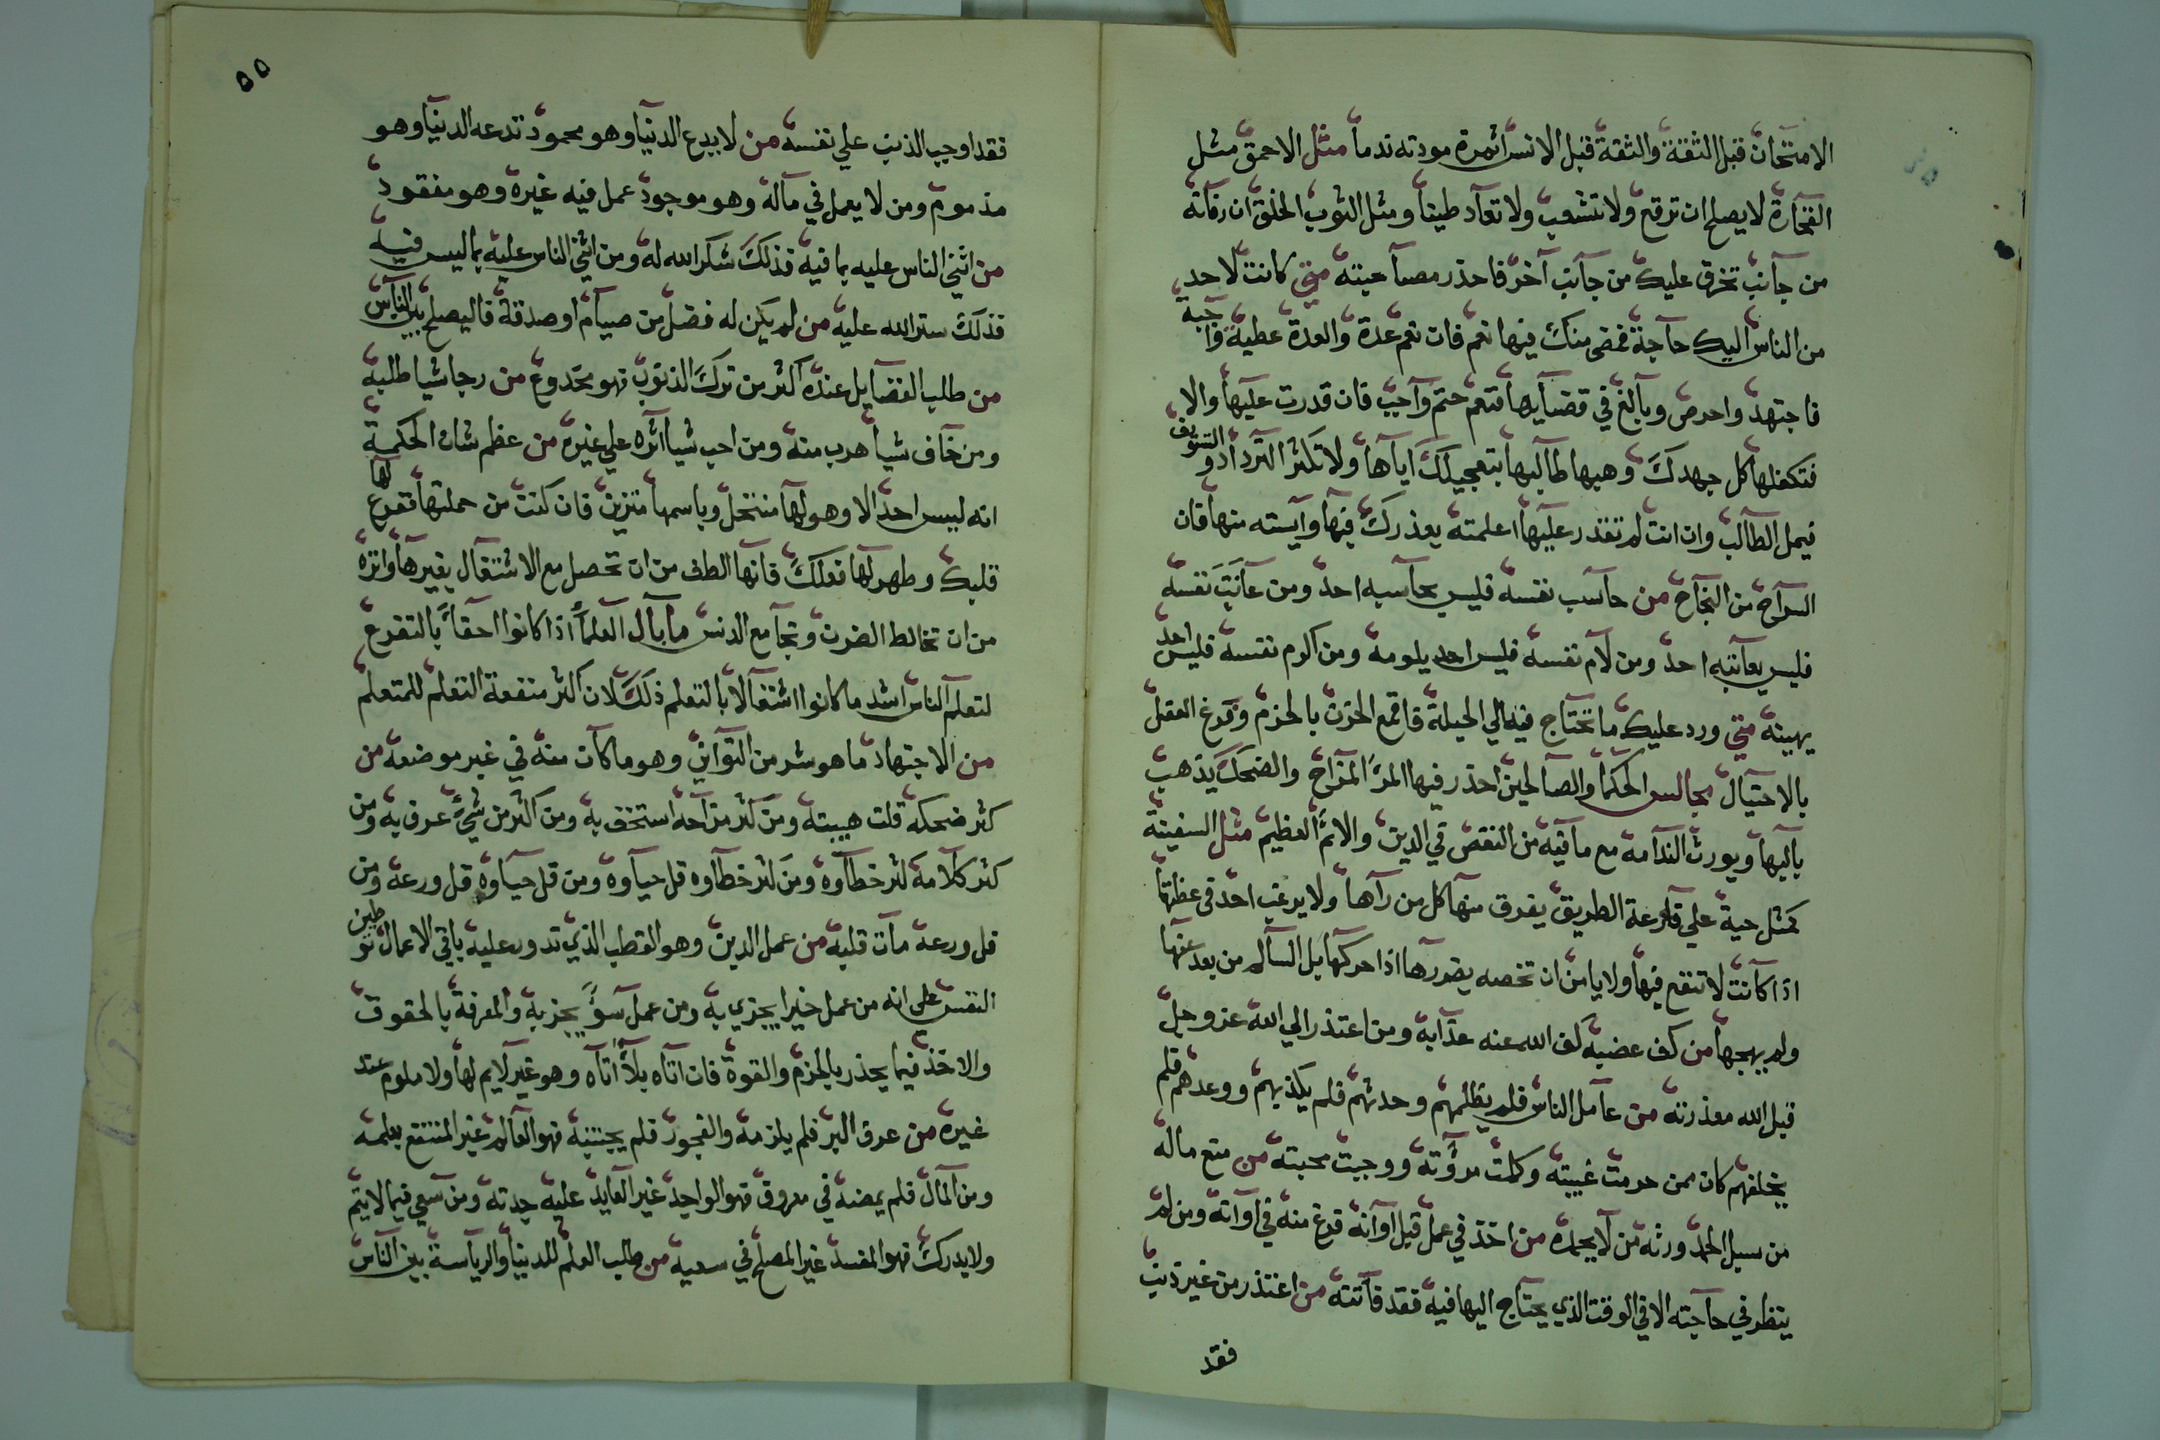 الامتحان قبل الثقة والثقة قبل الانس اثمرة مودته ندما مثل الاحمق مثل
الفخارة لا يصلح ان ترقع ولا تشعب ولا تعاد طينا ومثل الثوب الخلق ان رفأته
من جانب تخرق عليك من جانب آخر فاحذر مصاحبته متي كانت لاحد
من الناس اليك حاجة فمضي منك فيها نعم فان نعم عدة والعدة عطية واجبة
فاجتهد واحرص وبالغ في قضايها فنعم حتم واجب فان قدرت عليها والا
فتكفلها كل جهدك وهبها لطالبها بتعجيلك اياها ولا تكثر الترداد والتسويف
فيمل الطالب وان انت لم تقدر عليها اعلمته بعذرك فيها وآيسته منها فان
السراح من النجاح من حاسب نفسه فليس يحاسبه احد ومن عاتب نفسه
فليس يعاتبه احد ومن لام نفسه فليس احد يلومه ومن اكرم نفسه فليس احد
يهينه متي ورد عليك ما تحتاج فيه الي الحيلة فاقمع الحزن بالحزم وفرغ العقل
بالاحتيال مجالس الحكما والصالحين احذر فيها المزاح والضحك يذهب
بالبها ويورث الندامة مع ما فيه من النقص في الدين والاثم العظيم مثل السفينة
كمثل حية علي قارعة الطريق يفرق منها كل من رآها ولا يرغب احد في عظتها
اذا كانت لا تنفع فيها ولا يامن ان تخصه بضررها اذا حركها بل السالم من بعد عنها
ولم يهجها من كف غضبه كف الله عنه عذابه ومن اعتذر الي الله عز وجل
قبل الله معذرته من عامل الناس فلم يظلمهم وحدثهم فلم يكذبهم ووعدهم فلم
يخلفهم كان ممن حرمت غيبته وكملت مروته ووجبت محبته من منع ماله
من سبيل الحمد ورثه من لا يحمده من اخذ في عمل قبل اوانه فرغ منه في اوانه ومن لم
ينظر في حاجته الا في الوقت الذي يحتاج اليها فيه فقد فاتته من اعتذر من غير ذنب
فقد
٥٥
فقد اوجب الذنب علي نفسه من لا يدع الدنيا وهو محمود تدعه الدنيا وهو
مذموم ومن لا يعمل في ماله وهو موجود عمل فيه غيره وهو مفقود
من اثني الناس عليه بما فيه فذلك شكر الله له ومن اثني الناس عليه بما ليس فيه
فذلك ستر الله عليه من لم يكن له فضل من صيام او صدقة فاليصلح بين الناس
من طلب الفضايل عنده اكثر من ترك الذنوب فهو مخدوع من رجا شيا طلبه
ومن خاف شيا هرب منه ومن احب شيا اثره علي غيره من عظم شان الحكمة
انه ليس احد الا وهو لها منتحل وباسمها متزين فان كنت من حملتها ففرغ لها
قلبك وطهر لها فعلك فانها الطف من ان تحصل مع الاشتغال بغيرها وانزه
من ان تخالط الضرن وتجامع الدنس ما بال العلما اذا كانوا احقا بالتفرغ
لتعلم الناس اشد ما كانوا اشتغالا بالتعلم ذلك لان اكثر منفعة التعلم للمتعلم
من الاجتهاد ما هو شر من التواني وهو ما كان منه في غير موضعه من
كثر ضحكه قلت هيبته ومن كثر مزاحه استخف به ومن اكثر من شيء عرف به ومن
كثر كلامه كثر خطاوه ومن كثر خطاوه قل حياوه ومن قل حياوه قل ورعه ومن
قل ورعه مات قلبه من عمل الدين وهو القطب الذي تدور عليه باقي الاعمال توطين
النفس علي انه من عمل خيرا يجزي به ومن عمل سوء يجز به والمعرفة بالحقوق
والاخذ فيما يحذر بالحزم والقوة فان اتاه بلا اتاه وهو غير لايم لها ولا ملوم عند
غيره من عرف البر فلم يلزمه والفجور فلم يجتنبه فهو العالم غير المنتفع بعلمه
ومن المال فلم يمضه في معروف فهو الواجد غير العايد عليه جدته ومن سعي فيما لا يتم
ولا يدرك فهو المفسد غير المصلح في سعيه من طلب العلم للدنيا والرياسة بين الناس